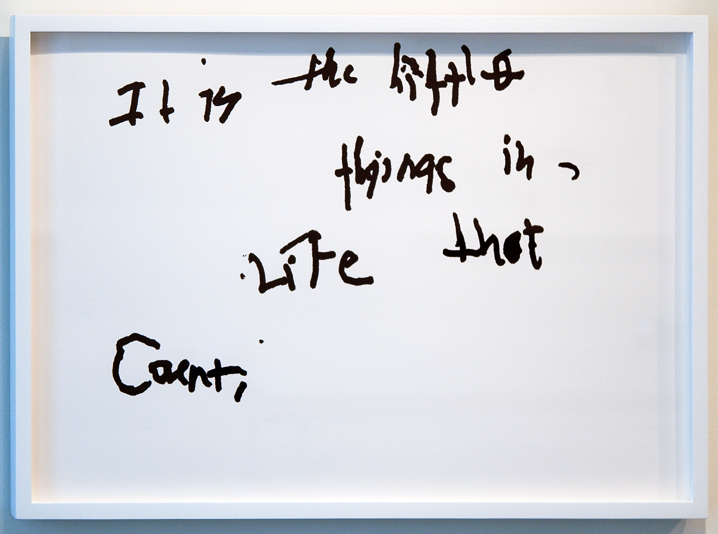 It is the little
things in,
Life that
Count,